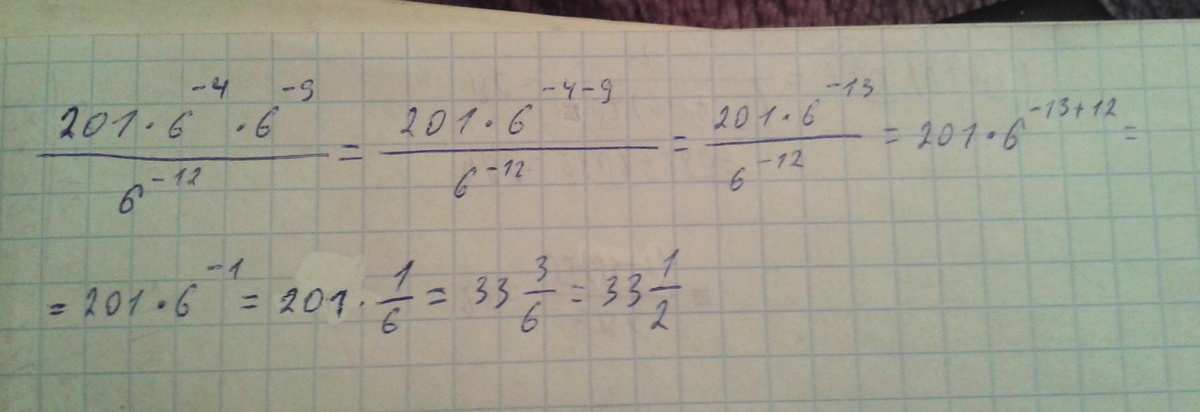 201·6^-4·6^-9 / 6^-12 = 201·6^-4-9 / 6^-12 = 201·6^-13 / 6^-12 = 201·6^-13+12 =
= 201·6^-1 = 201·1/6 = 33 3/6 = 33 1/2